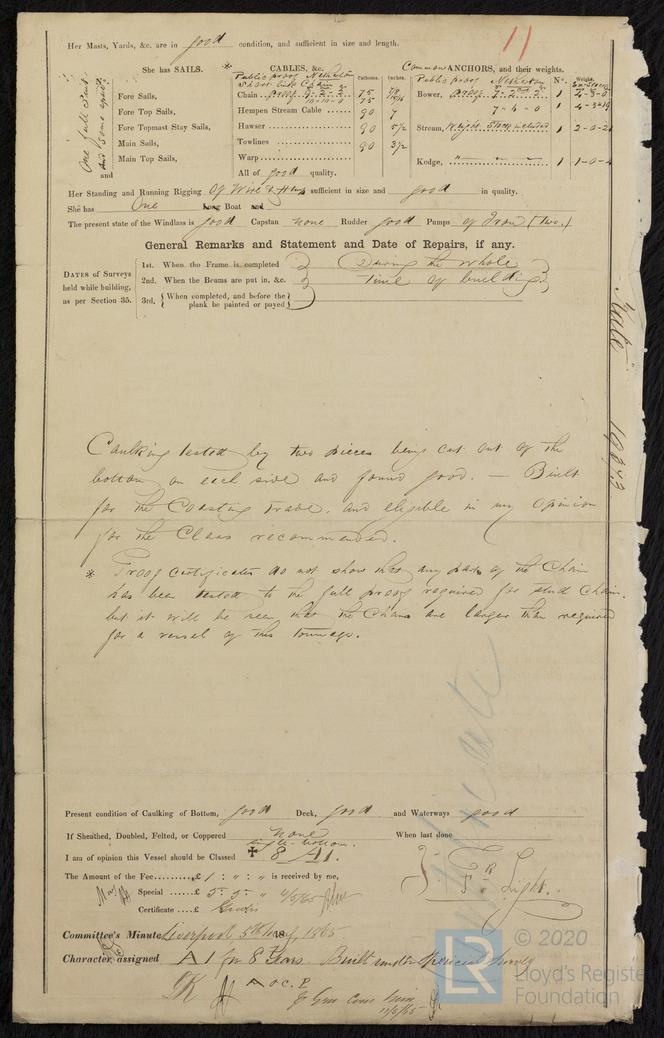 11
Her Masts, Yards, &c. are in good condition, and sufficient in size and length.
She has SAILS.
One full suit and some spare
Fore Sails,
Fore Top Sails,
Fore Topmast Stay Sails,
Main Sails,
Main Top Sails,
and
* CABLES, &c. Fathoms. Inches.
Public proof Netherton
Chain 75 7/8
75 
Hempen Stream Cable 90 7
Hawser 90 5 1/2
Towlines 90 3 1/2
Warp
All of good quality.
Common ANCHORS, and their weights. Nº. Weight.
Public proof Netherton
Bower, 1
7-4-0 1
Stream, Weight Stock included 1
Kedge, 1 1-0-4
Her Standing and Running Rigging Of Wire & Hemp sufficient in size and good in quality.
She has One Long Boat and
The present state of the Windlass is good Capstan none Rudder good Pumps of Iron (Two.)
General Remarks and Statement and Date of Repairs, if any.
DATES of Surveys held while building, as per Section 35.
1st. When the Frame is completed
2nd. When the Beams are put in, &c.
3rd. When completed, and before the plank be painted or payed
During the whole
time of building
Caulking tested by two pieces being cut out of the
bottom on each side and found good. — Built
for the Coasting trade, and eligible in my opinion
for the Class recommended.
* Proof Certificates do not show that any part of the Chain
has been tested to the full proof required for stud Chain.
but it will be seen that the Chains are larger than required
for a vessel of this tonnage.
Present condition of Caulking of Bottom, good Deck, good and Waterways good
If Sheathed, Doubled, Felted, or Coppered none When last done
single bottom.
I am of opinion this Vessel should be Classed 8 A1.
The Amount of the Fee £ 1 : " : " is received by me,
Special £ 5. 5. " 4/5/65
Certificate £ Gratis
Light.
Committee's Minute Liverpool, 5th May, 1865.
Character assigned A1 for 8 Years. Built under Special Survey
11/5/65
LR
© 2020
Lloyd's Register
Foundation